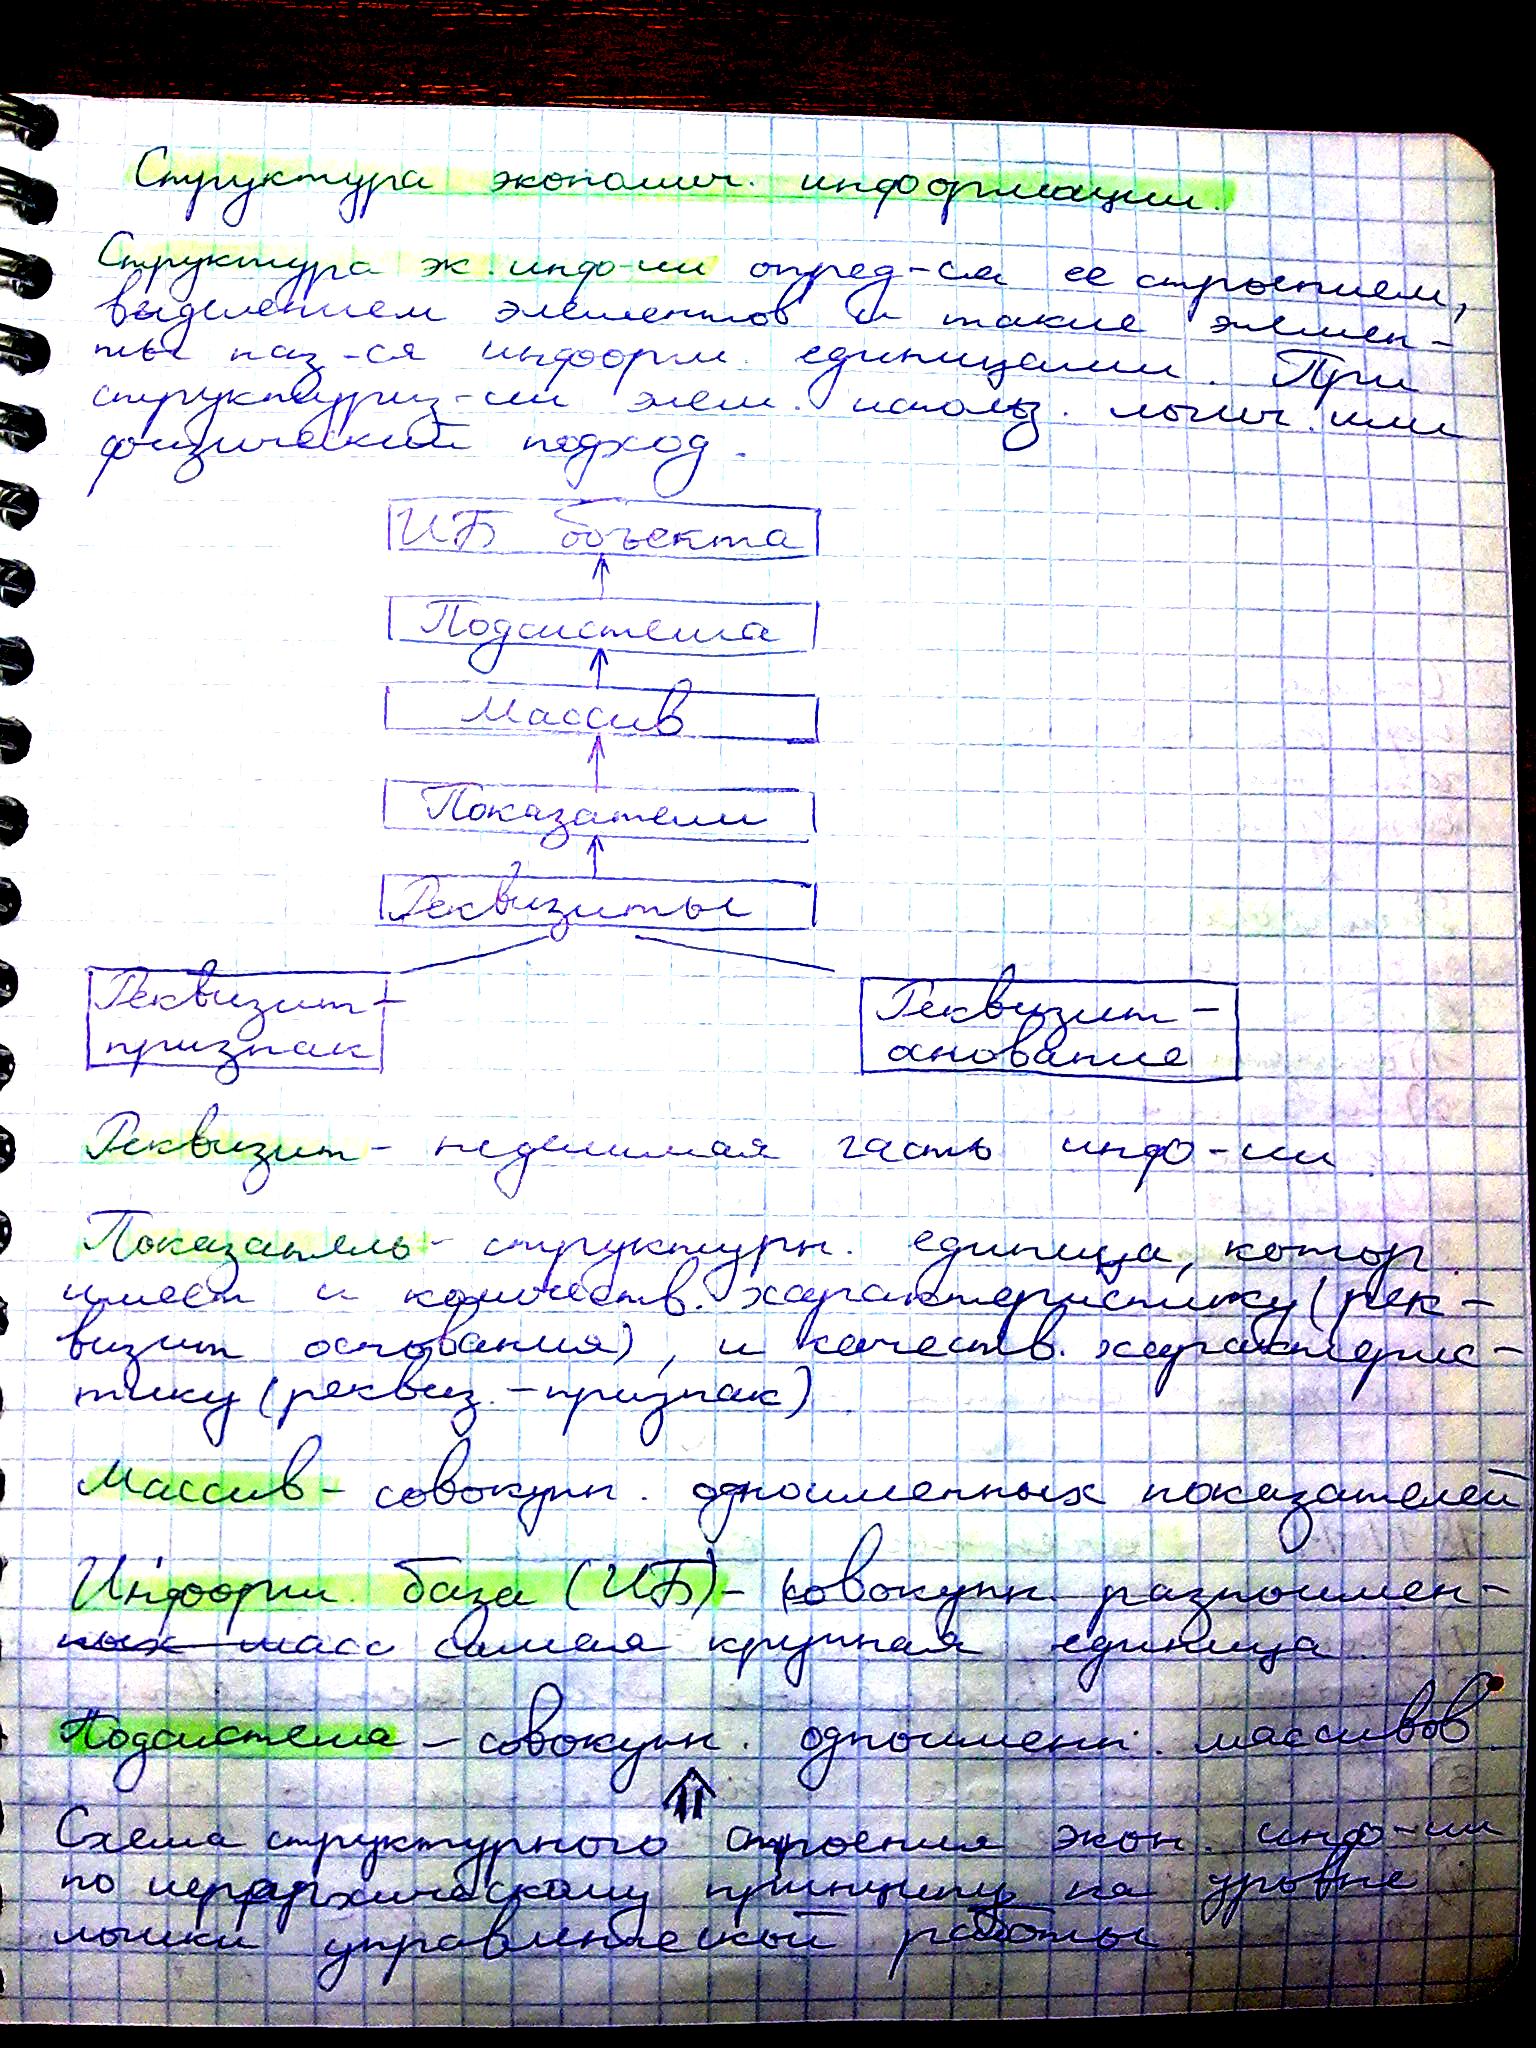 Структура экономич. информации.
Структура эк. инфо-ии опред-ся ее строением,
выделением элементов и такие элемен-
ты наз-ся информ. единицами. При
структуриз-ии элем. использ. логич. или
физический подход.
ИБ объекта
Подсистема
Массив
Показатели
Реквизиты
Реквизит-
признак
Реквизит-
основание
Реквизит - неделимая часть инфо-ии.
Показатель - структурн. единица, котор.
имеет и количеств. характеристику (рек-
визит основания), и качеств. характерис-
тику (реквиз. - признак).
Массив - совокупн. одноименных показателей.
Информ. база (ИБ) - совокупн. разноимен-
ных масс самая крупная единица.
Подсистема - совокупн. одноименн. массивов.
Схема структурного строения экон. инфо-ии
по иерархическому принципу на уровне
логики управленческой работы.